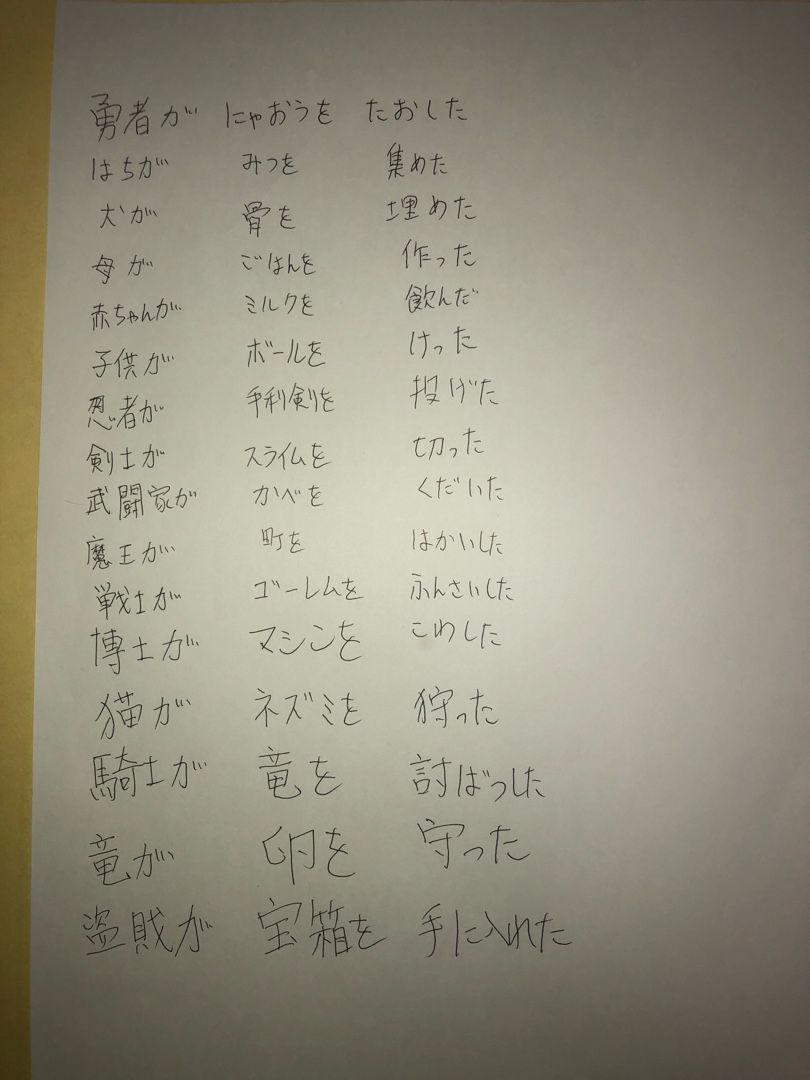 勇者が にゃおうを たおした
はちが みつを 集めた
犬が 骨を 埋めた
母が ごはんを 作った
赤ちゃんが ミルクを 飲んだ
子供が ボールを けった
忍者が 手利剣を 投げた
剣士が スライムを 切った
武闘家が かべを くだいた
魔王が 町を はかいした
戦士が ゴーレムを ふんさいした
博士が マシンを こわした
猫が ネズミを 狩った
騎士が 竜を 討ばつした
竜が 卵を 守った
盗賊が 宝箱を 手に入れた